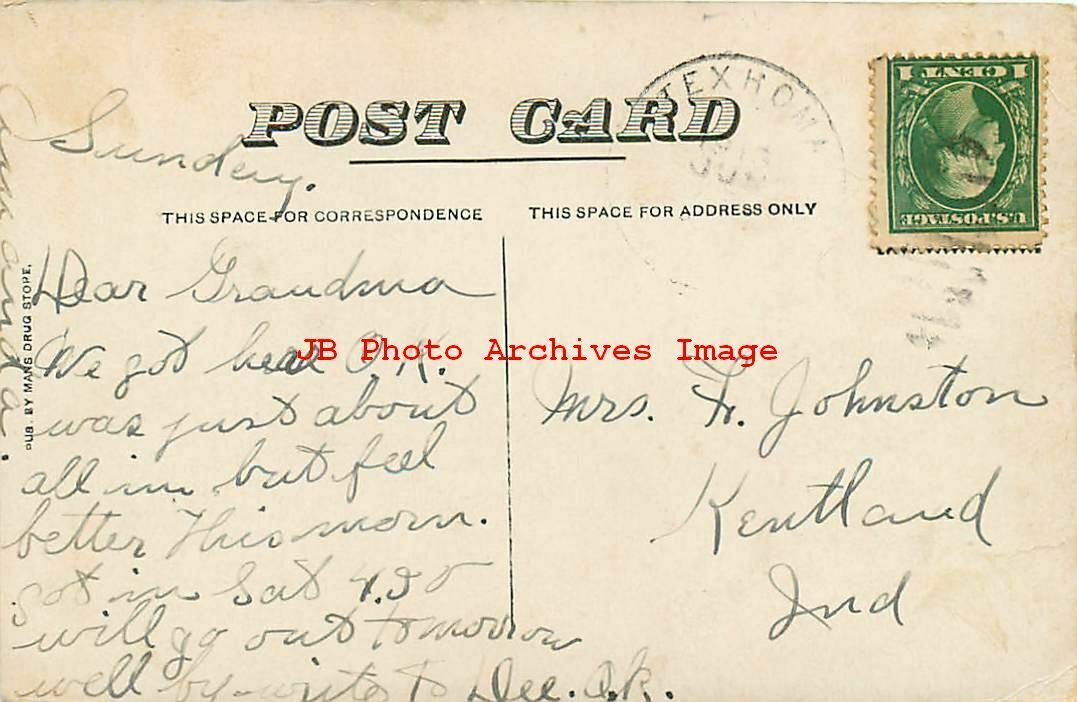 POST CARD
TEXHOMA
1913
Sunday.
THIS SPACE FOR CORRESPONDENCE
THIS SPACE FOR ADDRESS ONLY
1 CENT 1
U.S. POSTAGE
Dear Grandma
We got hear O.K.
was just about
all in but feel
better this morn.
got in Sat 4.20
will go out tomorrow
well by-write to Dee. O.K.
Amanda.
PUB. BY MANS DRUG STORE.
JB Photo Archives Image
Mrs. F. Johnston
Kentland
Ind